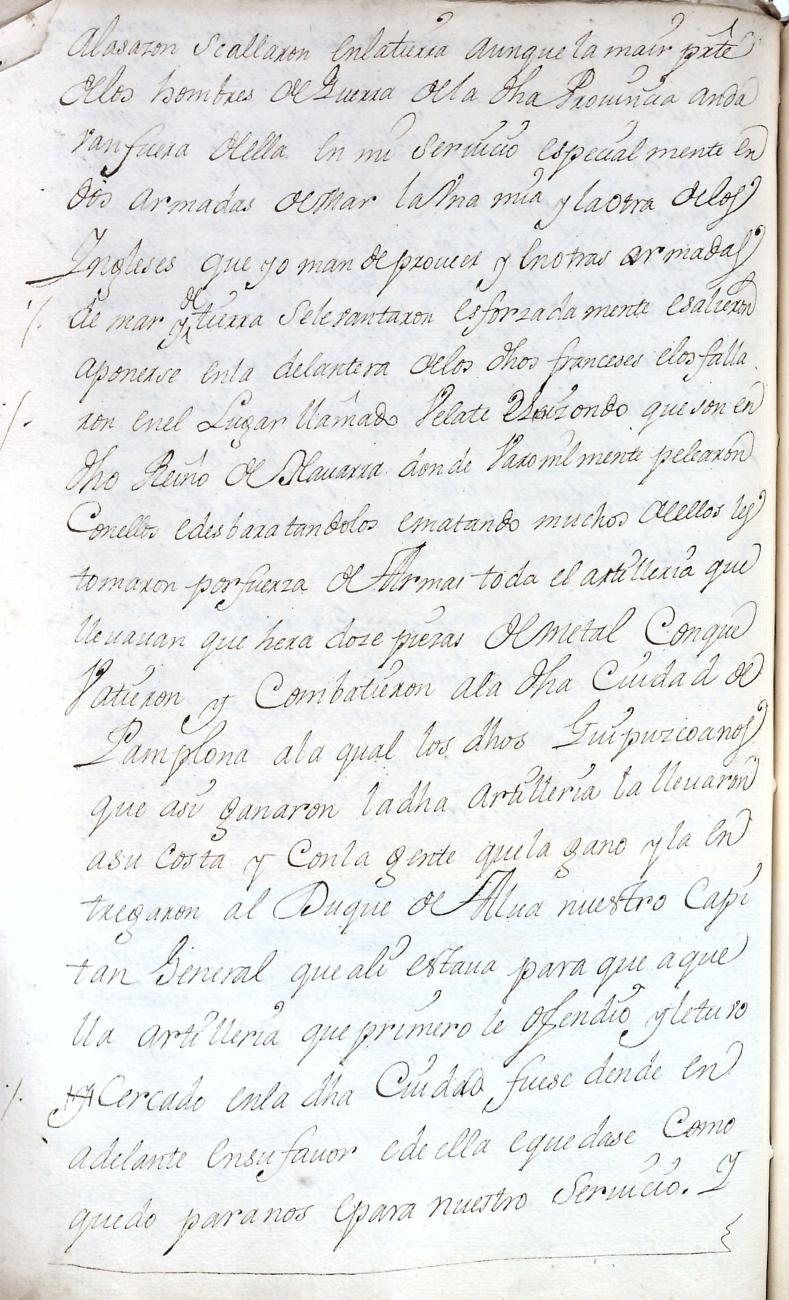 alasazon se allaron enlatierra aunque la maior prte
delos hombres de Guerra dela dha Provincia anda
van fuera della en mi servicio especialmente en
dos armadas de Mar la Vna mia y la otra delos
Yngleses que yo mande proveer y en otras armadas
de mar y de tierra se levantaron esforzadamente e salieron
a ponerse enla delantera delos dhos franceses e los falla
ron en el Lugar llamado Velate Elizondo que son en
dho Reino de Navarra donde Varonilmente pelearon
Conellos e desbaratandolos e matando muchos dellos les
tomaron por fuerza de Armas toda el artilleria que
llevavan que hera doze piezas de metal Conque
Vatieron y Combatieron ala dha Ciudad de
Pamplona ala qual los dhos Guipuzcoanos
que asi ganaron la dha artilleria la llevaron
a su costa y Conla gente que la gano y la en
tregaron al Duque de Alva nuestro Capi
tan General que ali estava para que aque
lla artilleria que primero le ofendio y le tuvo
Cercado enla dha Ciudad fuese dende en
adelante en su favor e de ella e quedase Como
quedo para nos e para nuestro servicio. Y